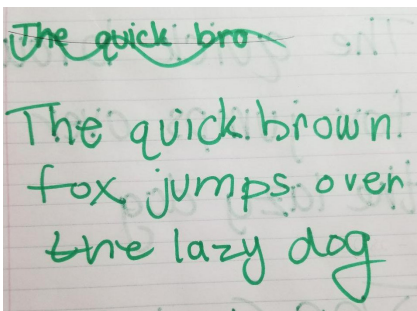 The quick bro
The quick brown
fox jumps over
the lazy dog